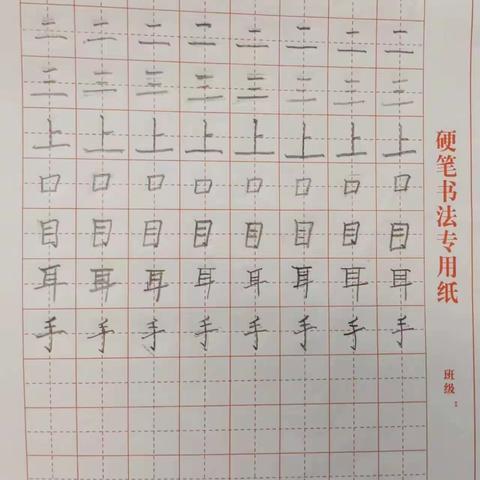 二 二 二 二 二 二 二 二
三 三 三 三 三 三 三 三
上 上 上 上 上 上 上 上
口 口 口 口 口 口 口 口
目 目 目 目 目 目 目 目
耳 耳 耳 耳 耳 耳 耳 耳
手 手 手 手 手 手 手 手
硬笔书法专用纸
班级：